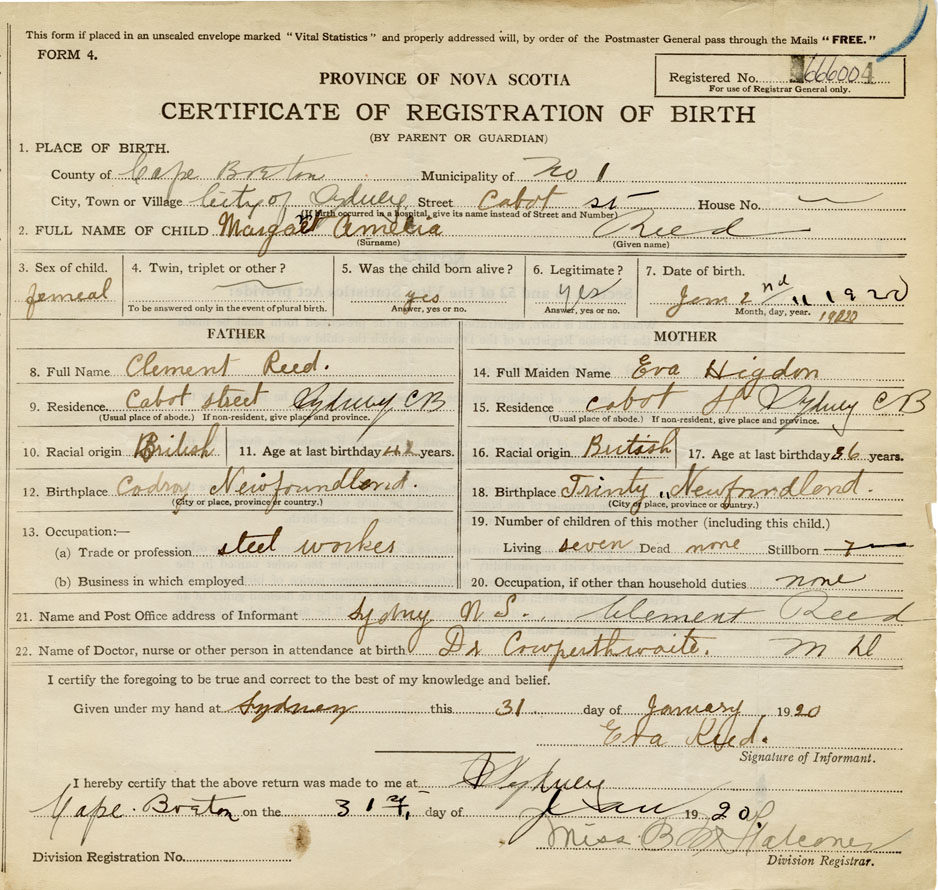 This form if placed in an unsealed envelope marked "Vital Statistics" and properly addressed will, by order of the Postmaster General pass through the Mails "FREE."
FORM 4.
PROVINCE OF NOVA SCOTIA
Registered No. 666004
For use of Registrar General only.
CERTIFICATE OF REGISTRATION OF BIRTH
(BY PARENT OR GUARDIAN)
1. PLACE OF BIRTH.
County of Cape Breton Municipality of No 1
City, Town or Village City of Sydney Street Cabot st House No.
(If birth occurred in a hospital, give its name instead of Street and Number)
2. FULL NAME OF CHILD Margaret Amelia Reed
(Surname) (Given name)
3. Sex of child. 4. Twin, triplet or other? 5. Was the child born alive? 6. Legitimate? 7. Date of birth.
femeal yes yes Jan 2nd 1920
To be answered only in the event of plural birth. Answer, yes or no. Answer, yes or no. Month, day, year. 1920
FATHER MOTHER
8. Full Name Clement Reed. 14. Full Maiden Name Eva Higdon
9. Residence. Cabot street Sydney CB 15. Residence cabot St Sydney CB
(Usual place of abode.) If non-resident, give place and province. (Usual place of abode.) If non-resident, give place and province.
10. Racial origin British 11. Age at last birthday years. 16. Racial origin British 17. Age at last birthday 36 years.
12. Birthplace Codroy Newfoundland. 18. Birthplace Trinty Newfoundland.
(City or place, province or country.) (City or place, province or country.)
13. Occupation:— 19. Number of children of this mother (including this child.)
(a) Trade or profession steel workes Living seven Dead none Stillborn
(b) Business in which employed 20. Occupation, if other than household duties none
21. Name and Post Office address of Informant Sydny N S. Clement Reed
22. Name of Doctor, nurse or other person in attendance at birth Dr Cowperthwaite. M D
I certify the foregoing to be true and correct to the best of my knowledge and belief.
Given under my hand at Sydney this 31 day of January 1920
Eva Reed.
Signature of Informant.
I hereby certify that the above return was made to me at Sydney
Cape Breton on the 31st, day of Jan 1920.
Miss B Falconer
Division Registration No. Division Registrar.